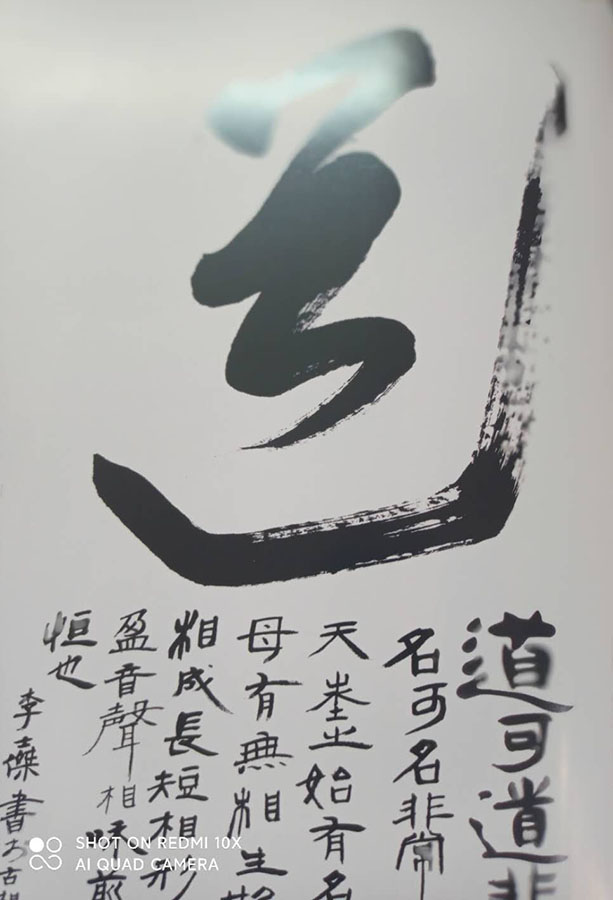 道
道可道非
名可名非常
天地之始有名
母有無相生
相成長短相形
盈音聲相和前
恒也
李 書於古
SHOT ON REDMI 10X
AI QUAD CAMERA